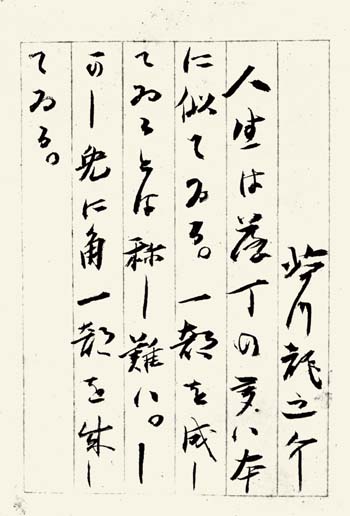 芥川龍之介
人生は落丁の多い本
に似てゐる。一部を成し
てゐるとは称し難い。し
かし兎に角一部を成し
てゐる。